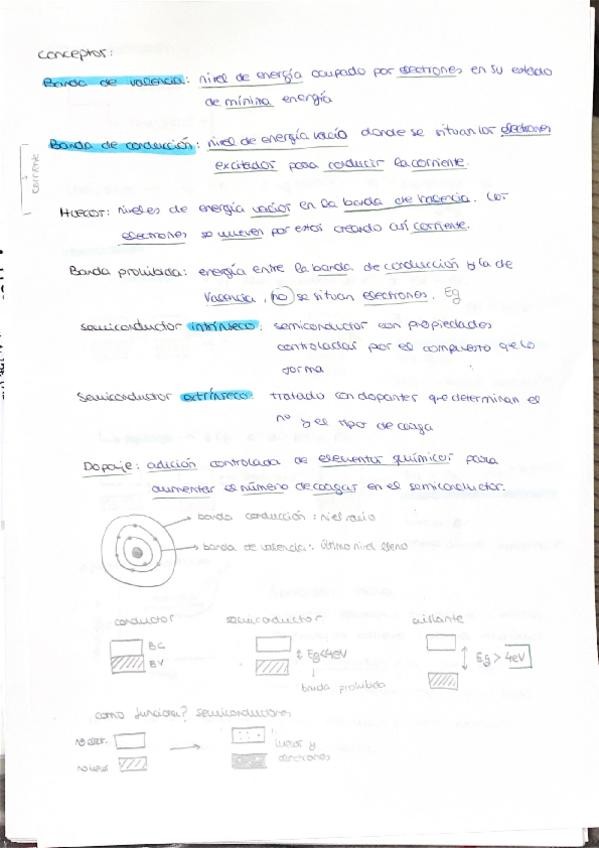 conceptos:
Banda de valencia: nivel de energía ocupado por electrones en su estado
de mínima energía
Banda de conducción: nivel de energía vacío donde se sitúan los electrones
excitados para conducir la corriente.
corriente
Huecos: niveles de energía vacíos en la banda de valencia. Los
electrones se mueven por estos creando así corriente.
Banda prohibida: energía entre la banda de conducción y la de
valencia, no se situan electrones. Eg
semiconductor intrínseco: semiconductor con propiedades
controladas por el compuesto que lo
forma
Semiconductor extrínseco: tratado con dopantes que determinan el
nº y el tipo de carga
Dopaje: adición controlada de elementos químicos para
aumentar el número de cargas en el semiconductor.
banda conducción: nivel vacío
banda de valencia: último nivel lleno
conductor semiconductor aislante
BC
BV
Eg<4eV
Eg > 4eV
banda prohibida
como funciona? semiconductores
huecos y
electrones